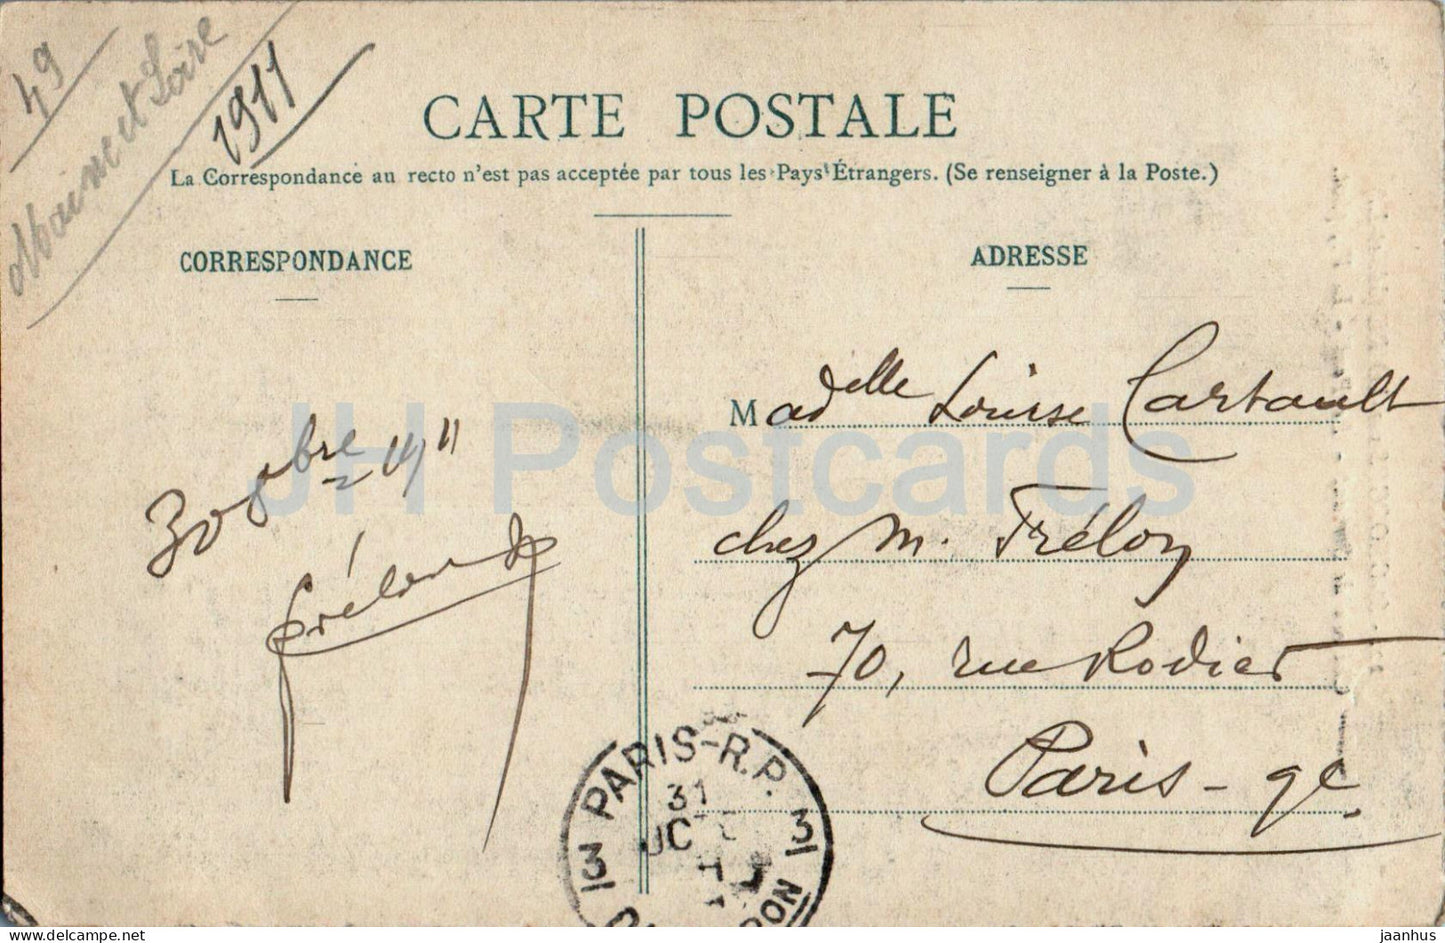 49
Maine et Loire
1911
CARTE POSTALE
La Correspondance au recto n'est pas acceptée par tous les Pays Étrangers. (Se renseigner à la Poste.)
CORRESPONDANCE
ADRESSE
30 8bre 1911
Frélon
Madelle Louise Cartault
chez M. Frélon
70, rue Rodier
Paris - 9e
PARIS-R.P.
31
3 3
JH Postcards
www.delcampe.net
jaanhus